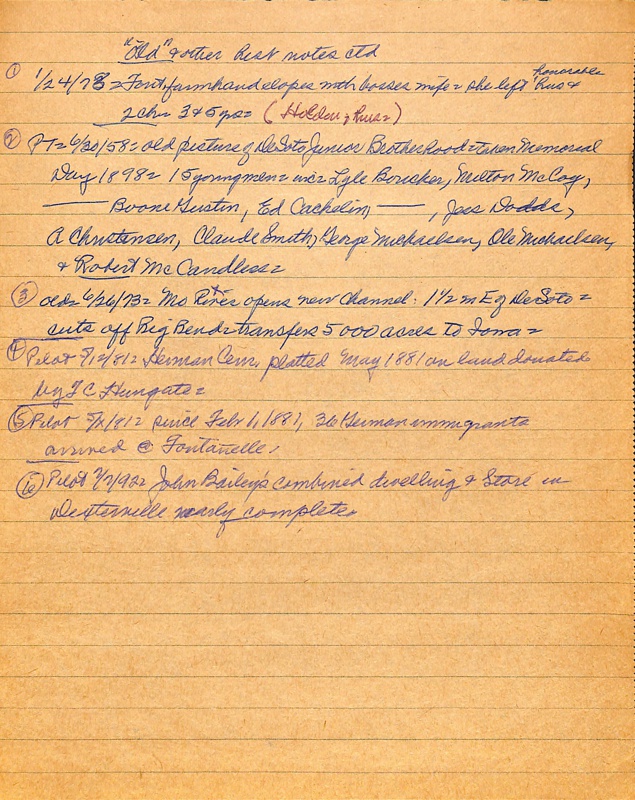 "Old" & other hist notes ctd
① 1/24/73= Font, farmhand elopes with bosses wife= she left honorable hus &
2 ch= 3 & 5 yrs= (Holden, hus=)
② PT= 6/30/58= old picture of DeSoto Junior Brotherhood= taken Memorial
Day 1898= 15 young men= inc= Lyle Boucher, Milton McCoy,
—— Boone Gustin, Ed Cachelin, ——, Jess Dodds,
A Christensen, Claude Smith, George Michaelsen, Ole Michaelsen,
& Robert McCandless=
③ old= 6/26/73= Mo River opens new channel. 1½ m E of DeSoto=
cuts off Big Bend= transfers 5000 acres to Iowa=
④ Pilot 5/12/81= Herman Cem, platted May 1881 on land donated
by T C Hungate=
⑤ Pilot 5/ /81= since Feb 1, 1881, 36 German immigrants
arrived @ Fontanelle,
⑥ Pilot 7/7/92= John Bailey's combined dwelling & Store in
Dexterville nearly complete=